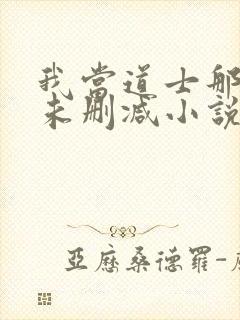 我當道士那
未刪減小說
亞歷桑德羅-